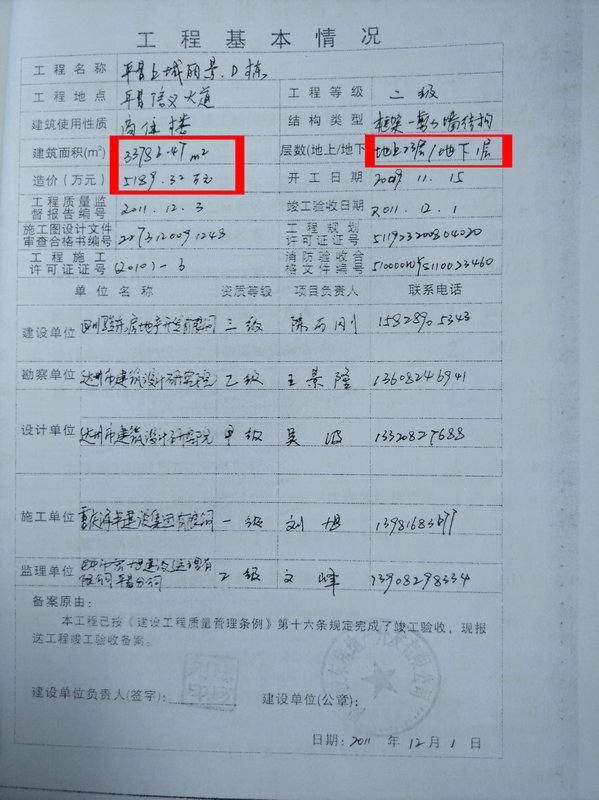 工程基本情况
工程名称 平昌上城丽景.D栋
工程地点 平昌信义大道 工程等级 二级
建筑使用性质 商住楼 结构类型 框架-剪力墙结构
建筑面积(m²) 33786.47m² 层数(地上/地下 地上23层/地下1层
造价(万元) 5189.32万元 开工日期 2009.11.15
工程质量监
督报告编号 2011.12.3 竣工验收日期 2011.12.1
施工图设计文件
审查合格书编号 工程规划
许可证证号
工程施工
许可证证号 (2010)-3 消防验收合
格文件编号
单位名称 资质等级 项目负责人 联系电话
建设单位 房地产开发有限公司 三级 15828905343
勘察单位 达州市建筑设计研究院 乙级 王景隆 13608246941
设计单位 达州市建筑设计研究院 甲级 吴 13320827688
施工单位 建设集团有限公司 一级 刘旭
监理单位 建设监理有
限公司平昌分公司 乙级 文峰 13908298334
备案原由:
本工程已按《建设工程质量管理条例》第十六条规定完成了竣工验收,现报
送工程竣工验收备案。
建设单位负责人(签字): 建设单位(公章):
日期:2011 年 12 月 1 日